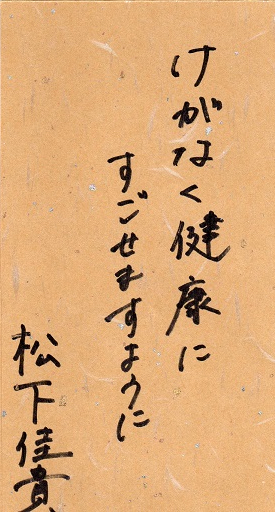 けがなく健康に
すごせますように
松下佳貴